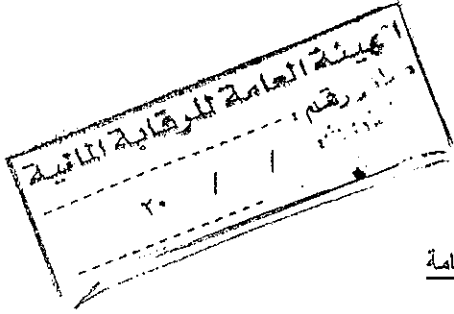 الهيئة العامة للرقابة المالية
رقم :
/ / ٢٠
امة